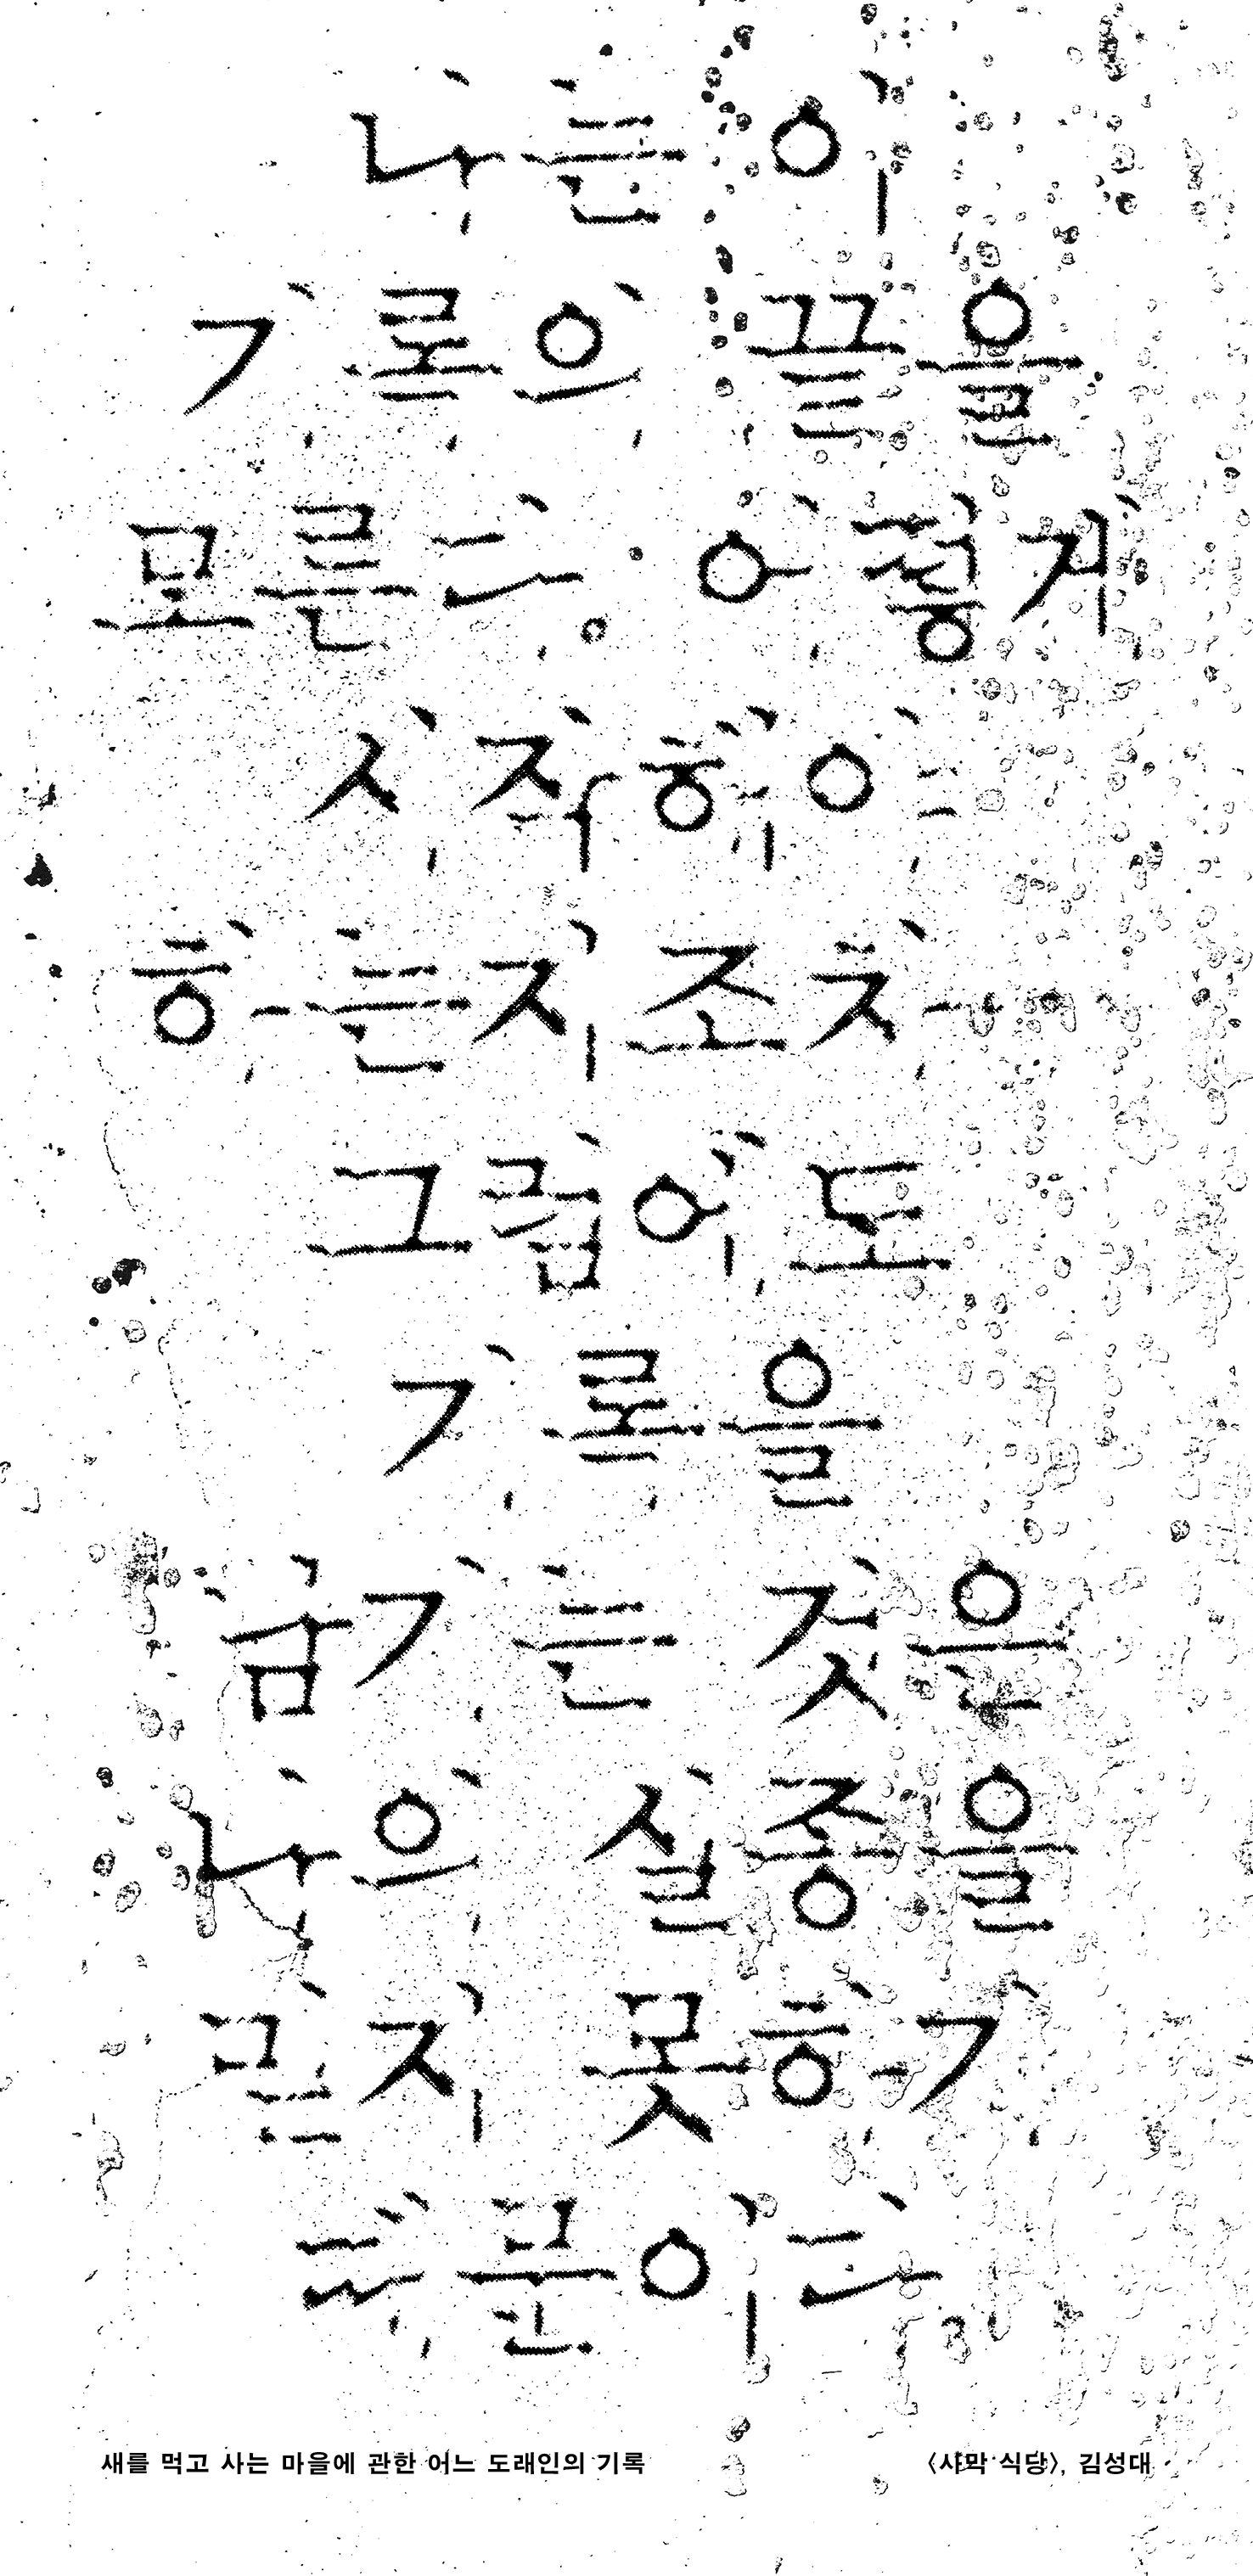 나는 이
기록의 끝을
모른다. 어떻게
시작해야
하는지조차
그럼에도
기록을
남기는 것은
나의 실종을
믿지 못하기
때문이다.
새를 먹고 사는 마을에 관한 어느 도래인의 기록
〈사막 식당〉, 김성대